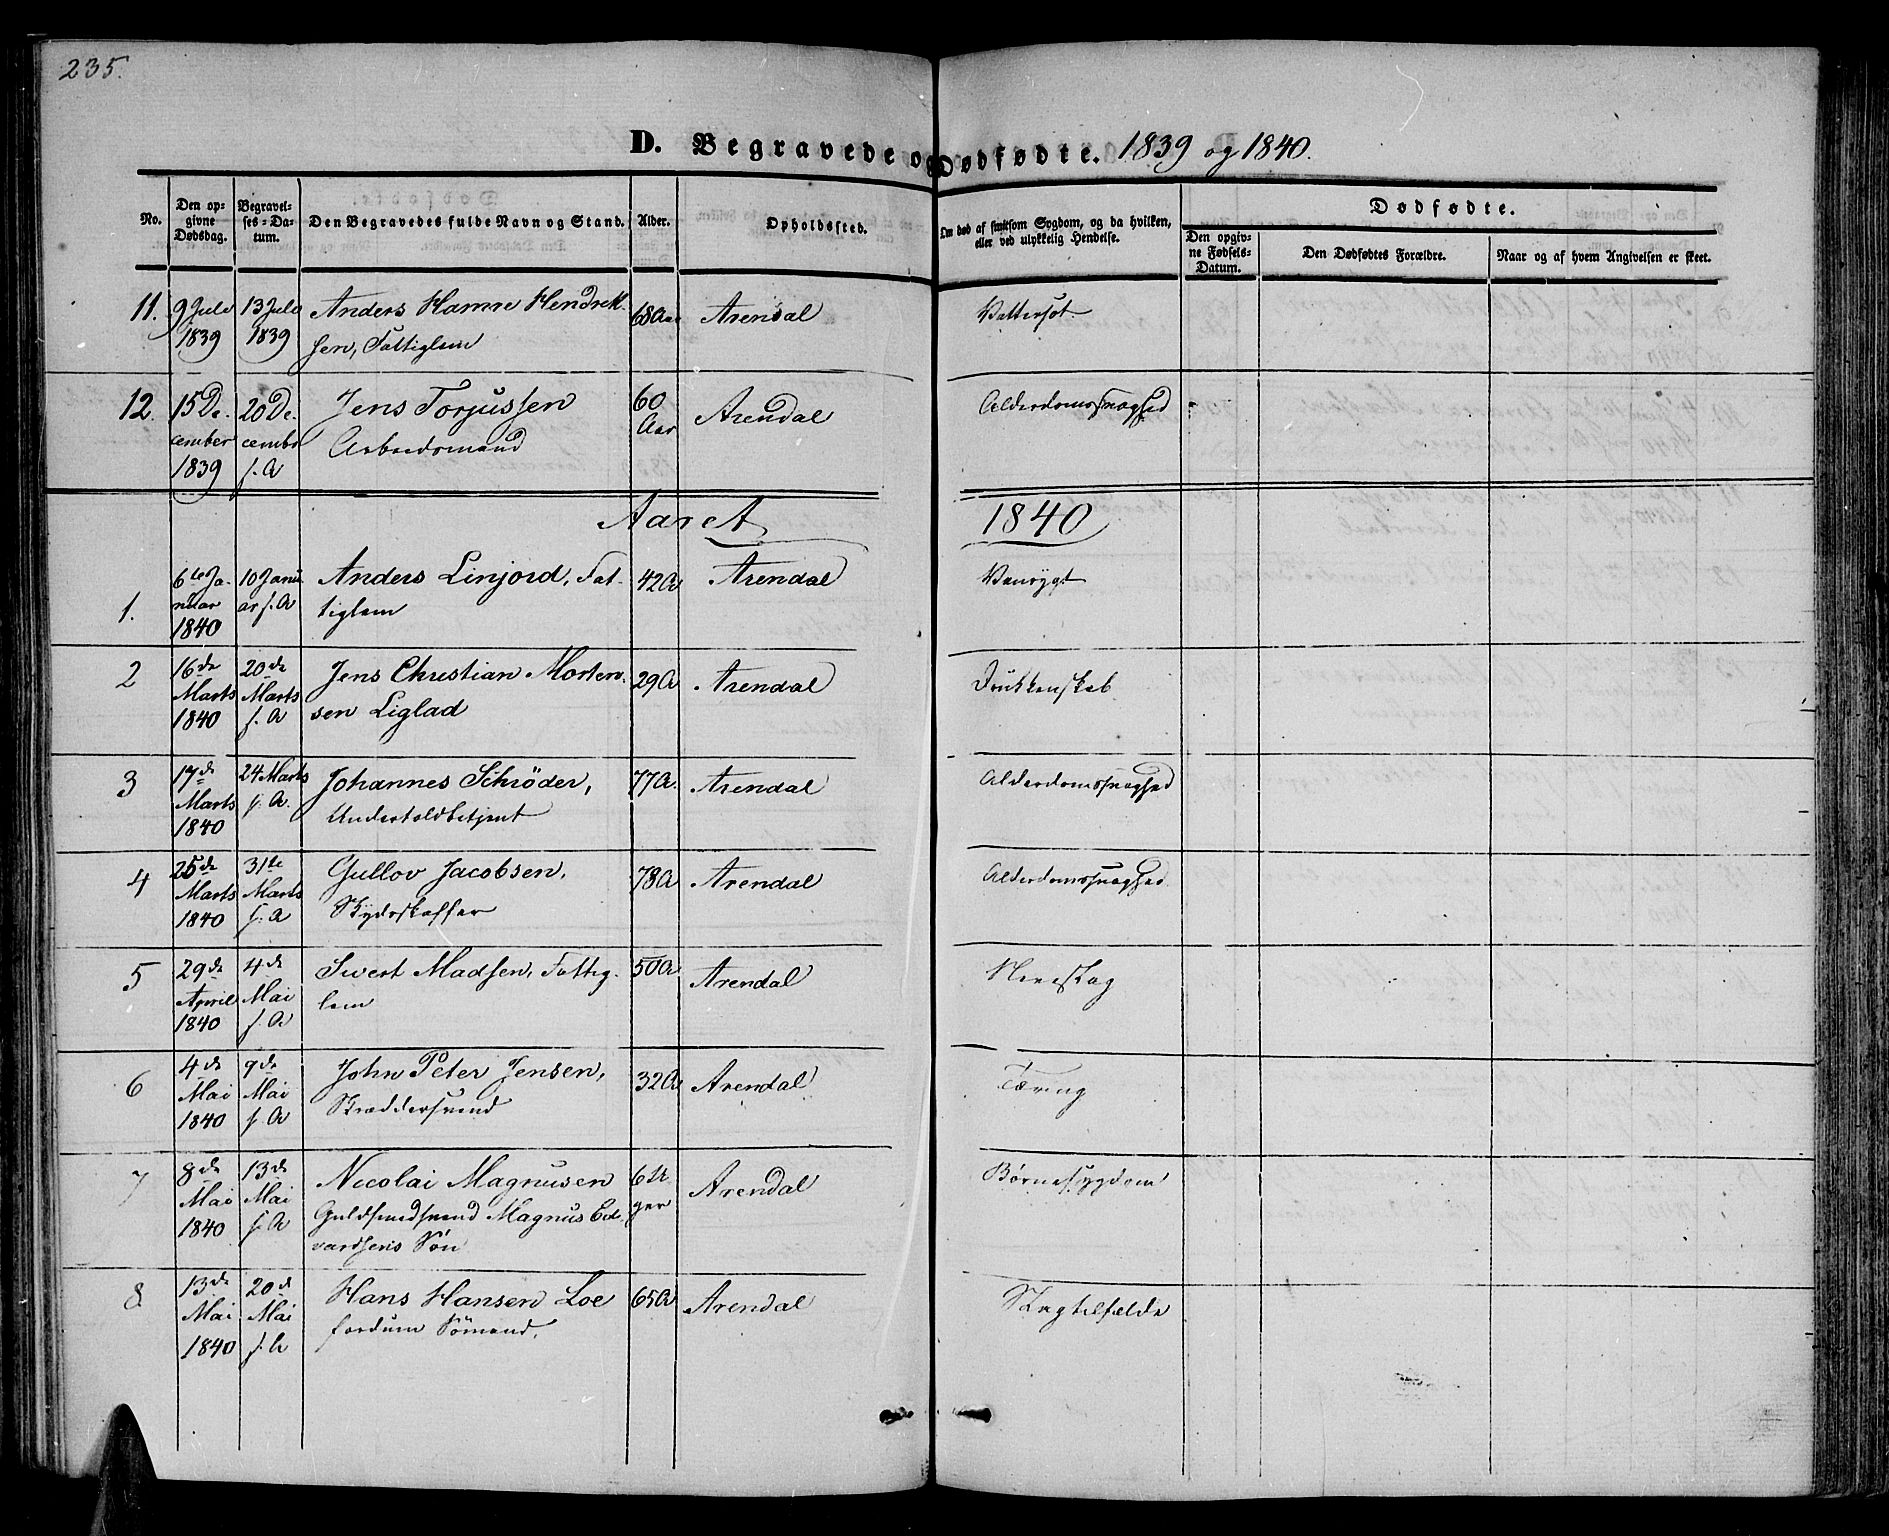 235.
D. Begravede og Dødfødte. 1839 og 1840.
No.
Den op-
givne
Dødsdag.
Begravel-
ses-Da-
tum.
Den Begravedes fulde Navn og Stand.
Alder.
Opholdssted.
Om død af smitsom Sygdom, og da hvilken,
eller ved ulykkelig Hendelse.
Dødfødte.
Den opgiv-
ne Fødsels-
Datum.
Den Dødfødtes Forældre.
Naar og af hvem Angivelsen er skeet.
11.
9 Juli
1839
13 Juli
1839
Anders Hamre Hendrik-
sen, Fattiglem
68 Aar
Arendal
Vattersot.
12.
15 De-
cember
1839
20 De-
cembr
s. A
Jens Torjussen
Arbeidsmand
60
Aar
Arendal
Alderdomssvaghed
Aaret 1840
1.
6te Ja-
nuar
1840
10 Janu-
ar s. A
Anders Linjord, Fat-
tiglem
42 A
Arendal
Vansygt
2
16de
Marts
1840
20de
Marts
s. A
Jens Christian Morten-
sen Liglad
29 A
Arendal
Drukkenskab
3
17de
Marts
1840
24 Marts
s. A.
Johannes Schröder,
Undertoldbetjent
77 A.
Arendal
Alderdomssvaghed
4
25de
Marts
1840
31te
Marts
s. A
Gullov Jacobsen,
Skydsskaffer
78 A
Arendal
Alderdomssvaghed
5
29de
April
1840
4de
Mai
s. A
Sivert Madsen, Fattig-
lem
50 A
Arendal
6
4de
Mai
1840
9de
Mai
s. A
John Peter Jensen,
Skræddersvend
32 A
Arendal
Tæring
7
8de
Mai
1840
13de
Mai
s. A
Nicolai Magnusen
Guldsmedsvend Magnus Ed-
vardsens Søn
6 U-
ger
Arendal
Børnesygdom
8
13de
Mai
1840
20de
Mai
s. A
Hans Hansen Loe
fordum Sømand.
65 A
Arendal
Slagtilfælde